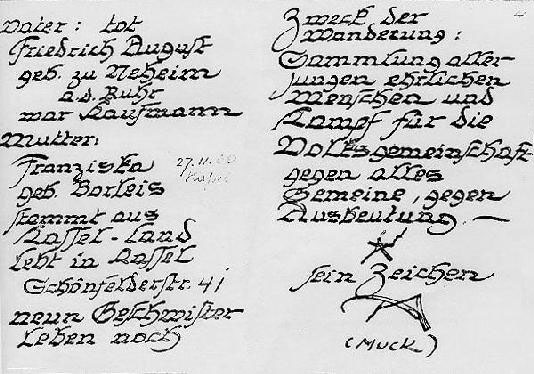 Vater: tot
Friedrich August
geb. zu Neheim
a.d. Ruhr
war Kaufmann
Mutter:
Franziska
geb. Borleis
stammt aus
Kassel-Land
lebt in Kassel
Schönfelderstr. 41
neun Geschwister
leben noch
27.11.
Kassel
Zweck der
Wanderung:
Sammlung aller
jungen ehrlichen
Menschen und
Kampf für die
Volksgemeinschaft
gegen alles
Gemeine, gegen
Ausbeutung. —
sein Zeichen
(Muck)